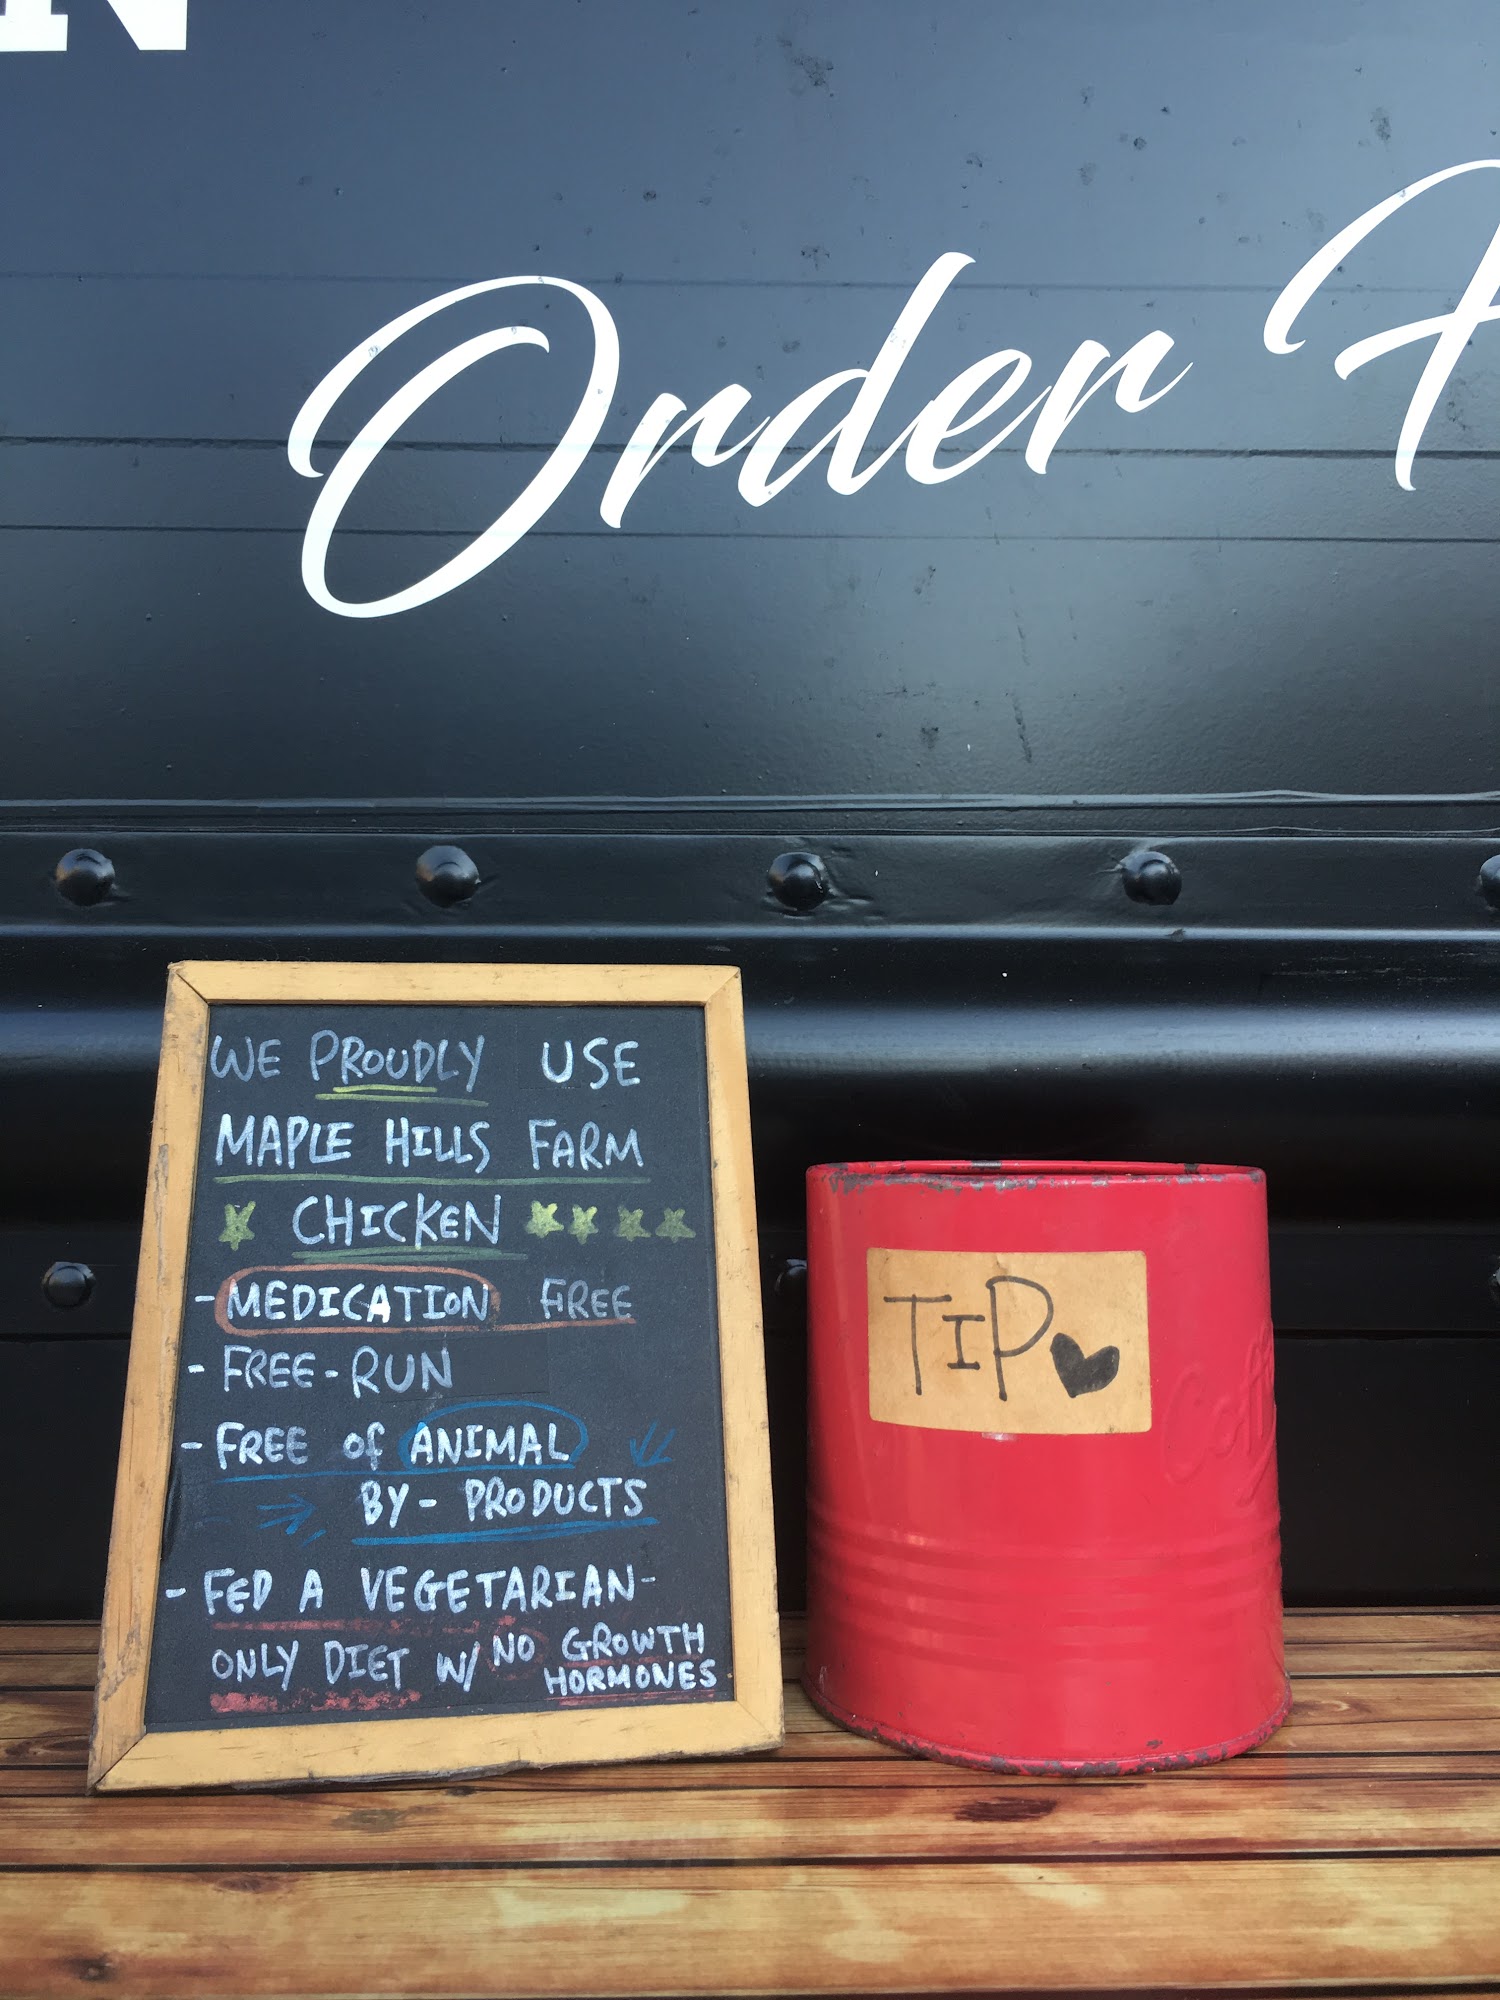 N
Order
WE PROUDLY USE
MAPLE HILLS FARM
CHICKEN
- MEDICATION FREE
- FREE-RUN
- FREE of ANIMAL
BY-PRODUCTS
- FED A VEGETARIAN-
ONLY DIET W/ NO GROWTH
HORMONES
TIP
Coff